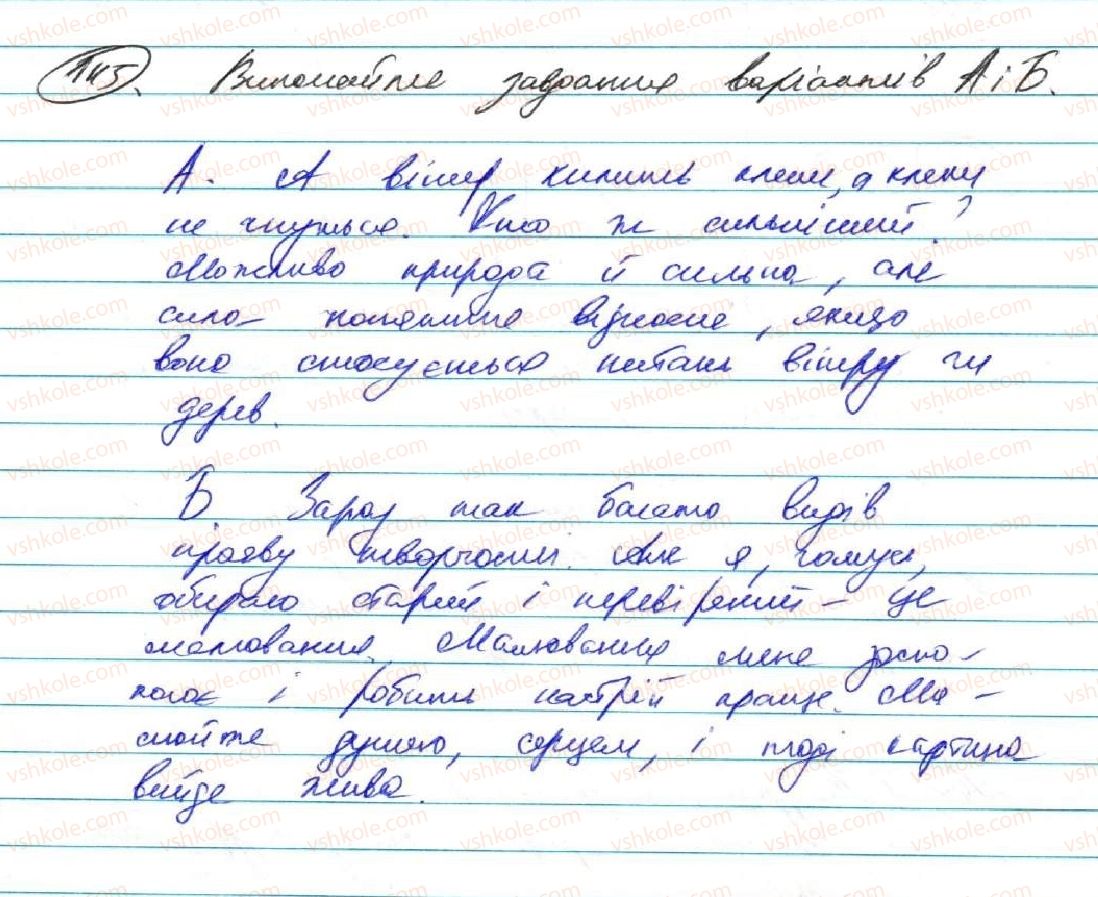 1145. Виконайте завдання варіантів А і Б.
А. А вітер хилить клени, а клени
не гнуться. Хто ж сильніший?
Можливо природа й сильна, але
сила поняття відносне, якщо
воно стосується питань вітру чи
дерев.
Б. Зараз так багато видів
прояву творчості. Але я, чомусь,
обираю старий і перевірений – це
малювання. Малювання мене заспо-
коює і робить настрій краще. Ма-
люйте душею, серцем, і тоді картина
вийде жива.